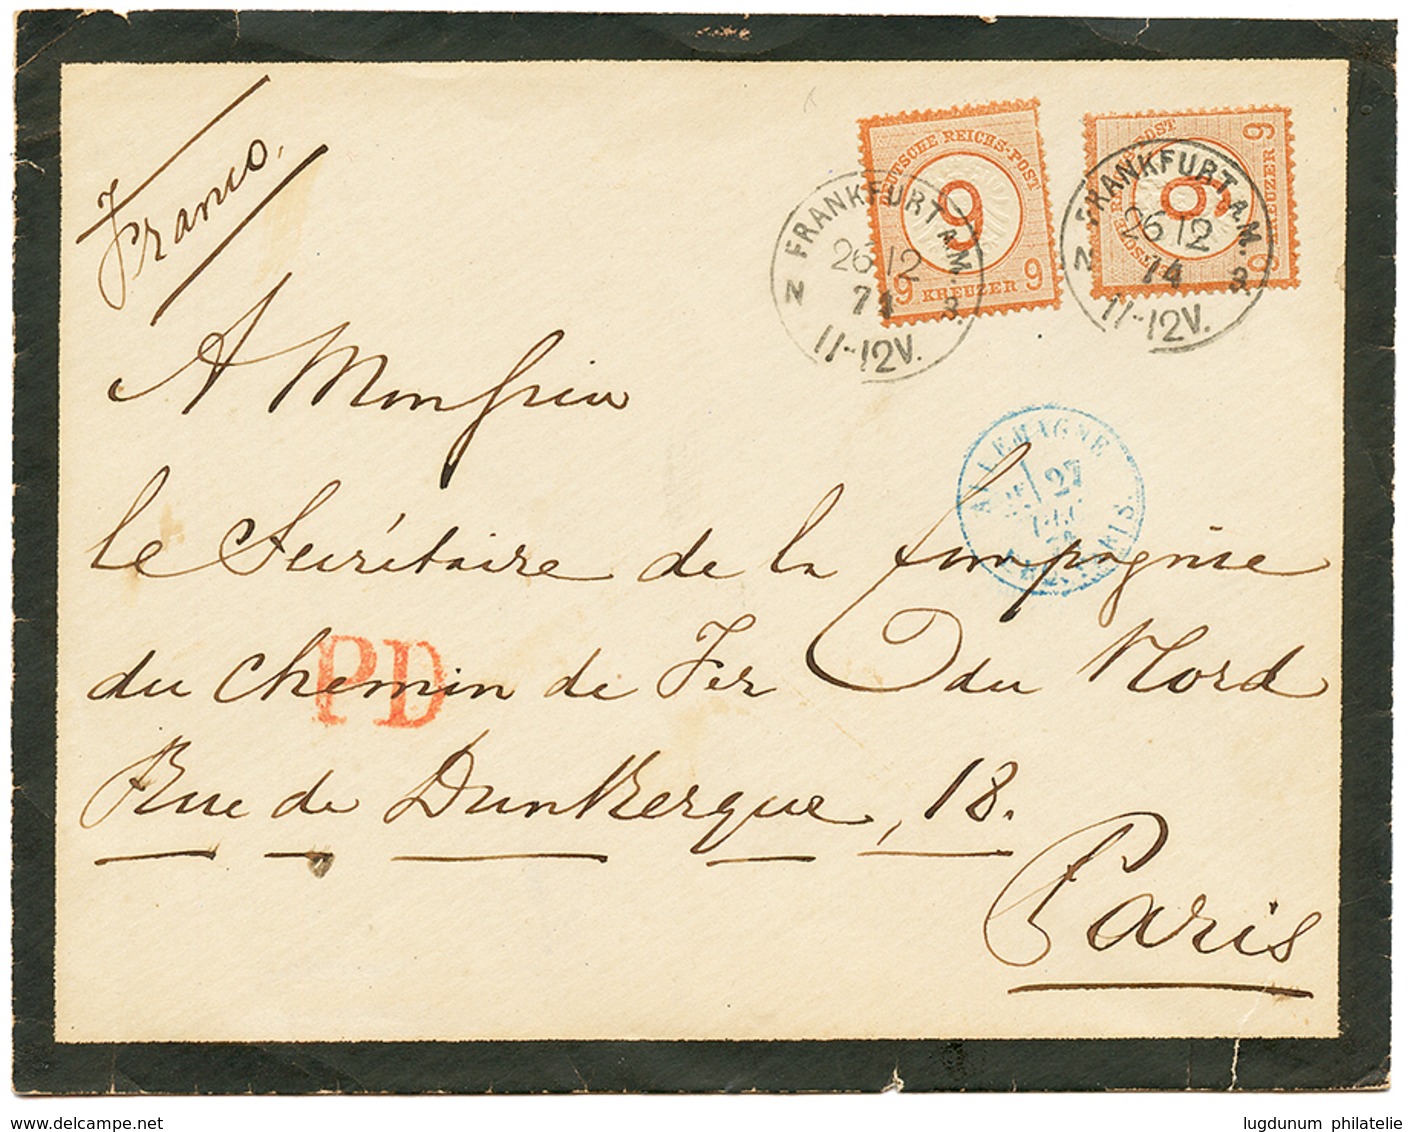 Franco.
DEUTSCHE REICHS-POST
9
9 KREUZER 9
FRANKFURT A.M.
26 12
74
N 3.
11-12V.
POST
9
9 KREUZER 9
FRANKFURT A.M.
26 12
74
N 3.
11-12V.
A Monsieur
ALLEMAGNE
27
le Secrétaire de la Compagnie
du Chemin de Fer du Nord
PD
Rue de Dunkerque, 18.
Paris
delcampe.net
lugdunum philatelie